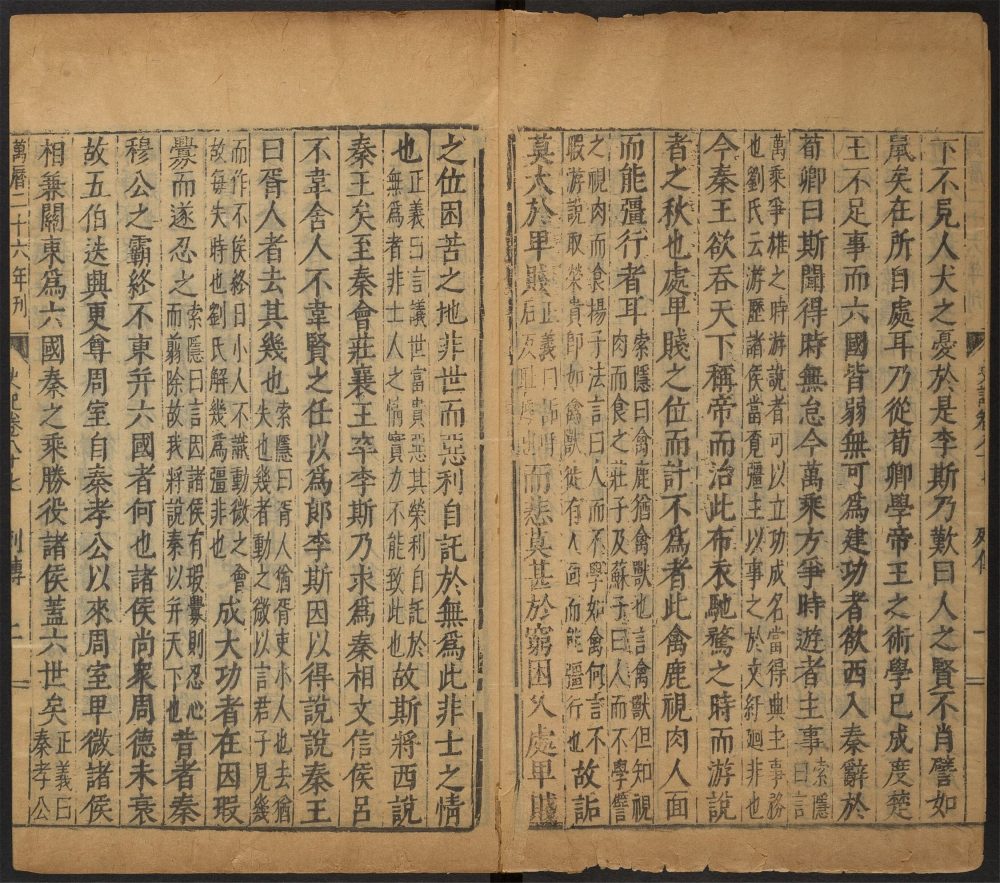 下不見人犬之憂於是李斯乃歎曰人之賢不肖譬如
鼠矣在所自處耳乃從荀卿學帝王之術學已成度楚
王不足事而六國皆弱無可爲建功者欲西入秦辭於
荀卿曰斯聞得時無怠今萬乘方爭時遊者主事索隱曰言
萬乘爭雄之時游說者可以立功成名當得典主事務
也劉氏云游歷諸侯當覓彊主以事之於文紆廻非也
今秦王欲吞天下稱帝而治此布衣馳騖之時而游說
者之秋也處卑賤之位而計不爲者此禽鹿視肉人面
而能彊行者耳索隱曰禽鹿猶禽獸也言禽獸但知視
肉而食之莊子及蘇子曰人而不學譬
之視肉而食揚子法言曰人而不學如禽何言不
暇游說取榮貴即如禽獸徒有人面而能彊行也故詬
莫大於卑賤而悲莫甚於窮困久處卑賤
之位困苦之地非世而惡利自託於無爲此非士之情
也正義曰言議世富貴惡其榮利自託於
無爲者非士人之情實力不能致此也故斯將西說
秦王矣至秦會莊襄王卒李斯乃求爲秦相文信侯呂
不韋舍人不韋賢之任以爲郎李斯因以得說說秦王
曰胥人者去其幾也索隱曰胥人猶胥吏小人也去猶
失也幾者動之微以言君子見幾
而作不俟終日小人不識動微之會
故每失時也劉氏解幾爲彊非也成大功者在因瑕
釁而遂忍之索隱曰言因諸侯有瑕釁則忍心
而翦除故我將說秦以并天下也昔者秦
穆公之霸終不東并六國者何也諸侯尚衆周德未衰
故五伯迭興更尊周室自秦孝公以來周室卑微諸侯
相兼關東爲六國秦之乘勝役諸侯蓋六世矣正義曰
秦孝公
萬曆二十六年刊
史記卷八十七
列傳
二